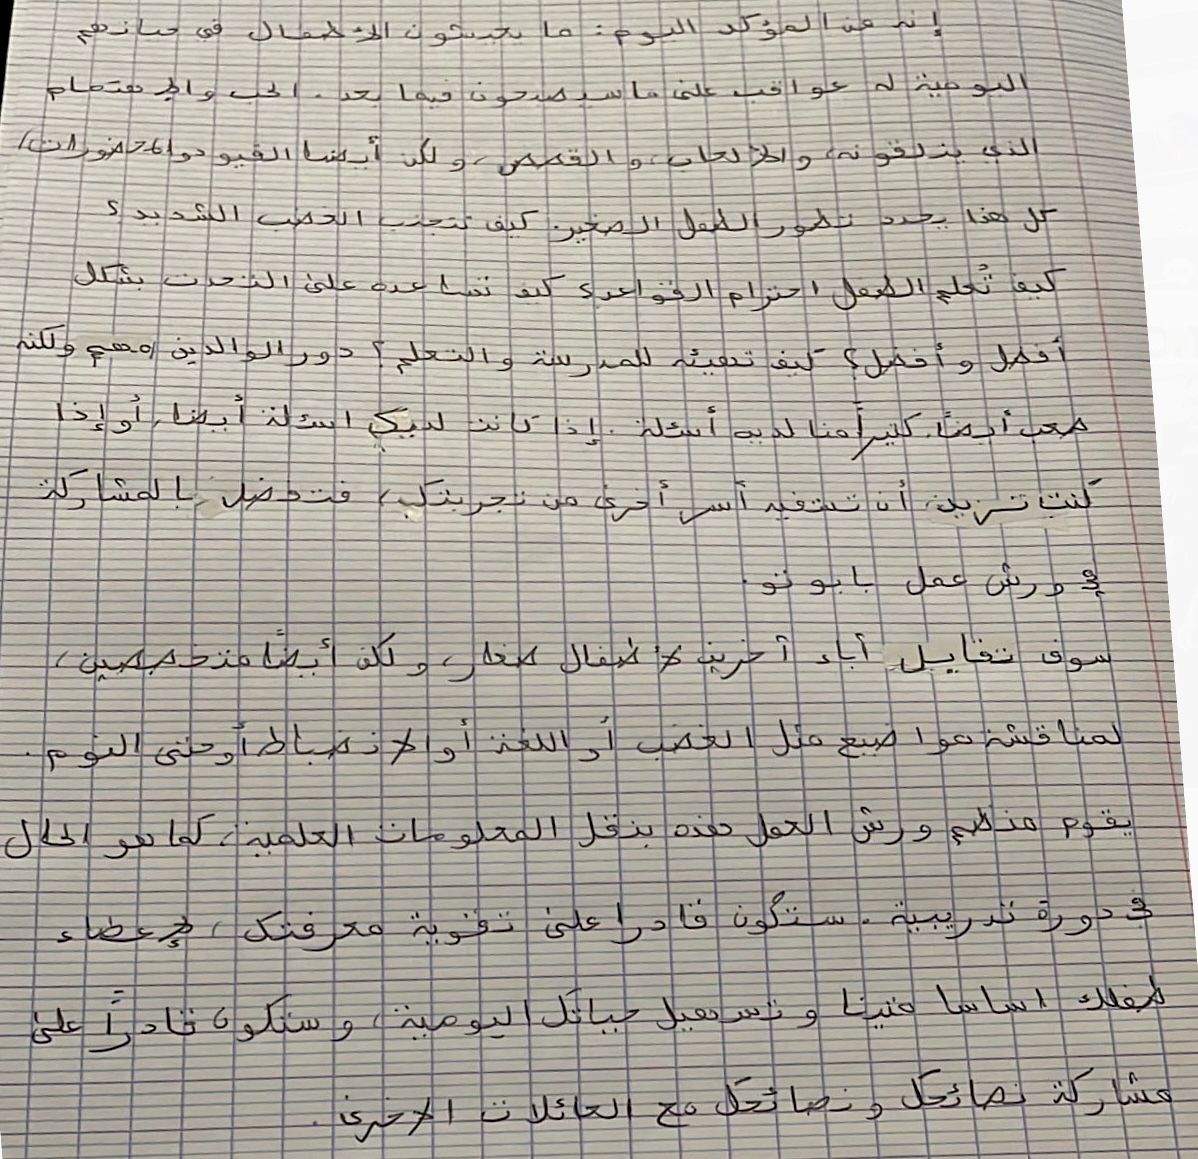 إنه من المؤكد اليوم: ما يعيشون الأطفال في حياتهم
اليومية له عواقب على ما سيصبحون فيما بعد. الحب والاهتمام
الذي يتلقونه، والألعاب، والقصص، ولكن أيضا القيود والمحضورات،
كل هذا يحدد تطور الطفل الصغير. كيف نتجنب الغضب الشديد؟
كيف تُعلم الطفل احترام القواعد؟ كيف تساعده على التحدث بشكل
أفضل وأفضل؟ كيف تهيئه للمدرسة والتعلم؟ دور الوالدين مهم ولكنه
صعب أيضاً. كثيرأمنا لديه أسئلة. إذا كانت لديك اسئلة أيضا، أو إذا
كنت تريد، أن تستفيد أسر أخرى من تجربتك، فتفضل بالمشاركة
في ورش عمل بابونو.
سوف تقابل آباء آخرين لأطفال صغار، ولكن أيضاً متخصصين،
لمناقشة مواضيع مثل الغضب أو اللغة أو الانضباط أو حتى النوم.
يقوم منظم ورش العمل هذه بنقل المعلومات العلمية، كما هو الحال
في دورة تدريبية. ستكون قادرا على تقوية معرفتك، لإعطاء
طفلك اساسا متينا وتسهيل حياتك اليومية، وستكون قادراً على
مشاركة نصائحك ونصائحك مع العائلات الأخرى.